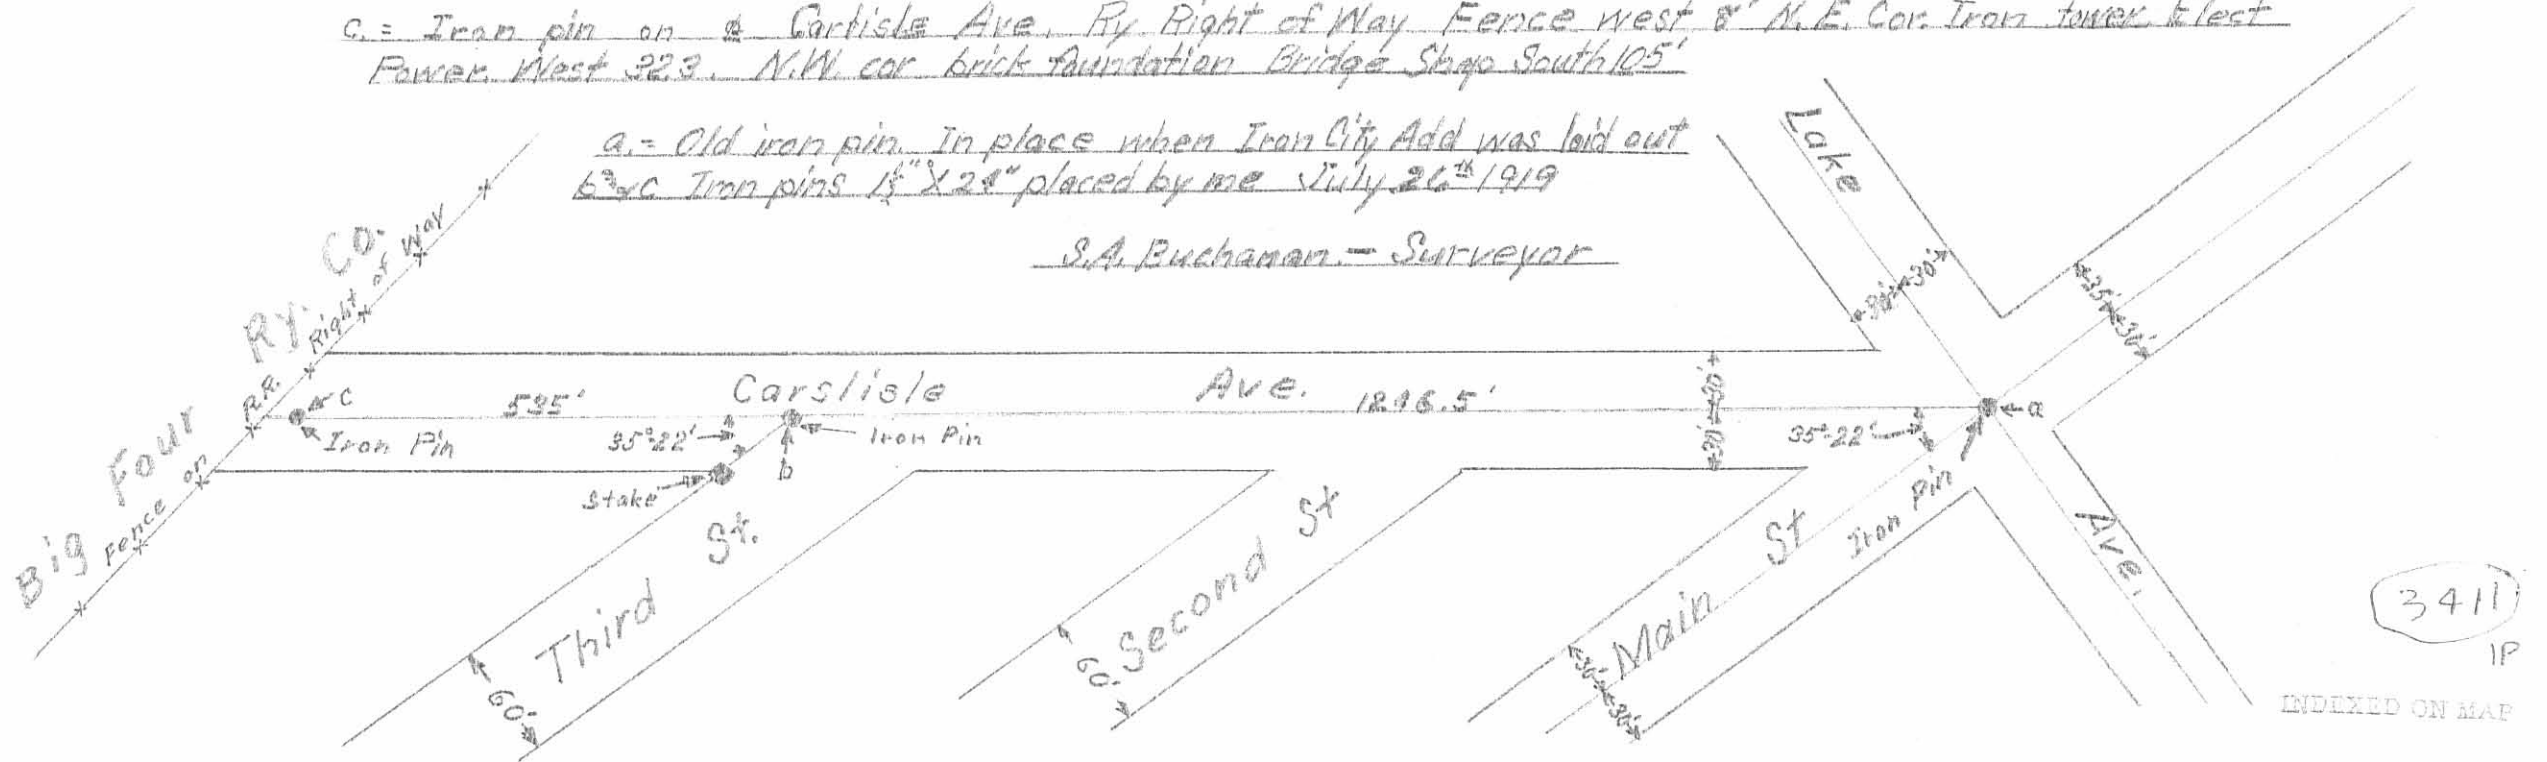 c. = Iron pin on Carlisle Ave. Ry. Right of Way Fence west 8' N.E. Cor. Iron tower Elect
Power. West 323. N.W. cor brick foundation Bridge Shop South 105'
a. = Old iron pin. In place when Iron City Add was laid out
Iron pins placed by me July 26th 1919
S.A. Buchanan. - Surveyor
Lake
Ave.
Big Four Ry. Co.
Fence on R.R. Right of Way
c
Iron Pin
535'
Carslisle Ave.
1296.5'
35°-22'
Iron Pin
b
Stake
30'
30'
30'
30'
35'
30'
35°-22'
a
Iron Pin
Third St.
60'
Second St
60'
Main St
30'
30'
3411
1P
INDEXED ON MAP